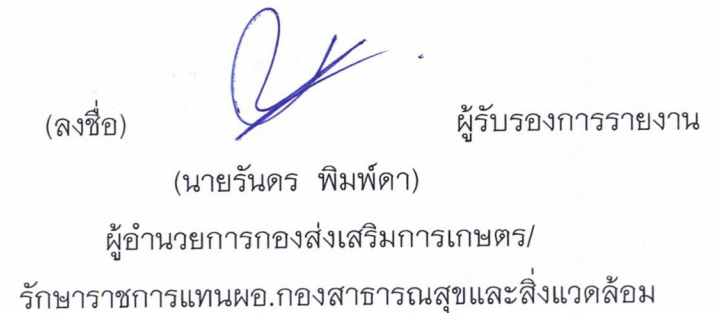 (ลงชื่อ) ผู้รับรองการรายงาน
(นายรันดร พิมพ์ดา)
ผู้อำนวยการกองส่งเสริมการเกษตร/
รักษาราชการแทนผอ.กองสาธารณสุขและสิ่งแวดล้อม